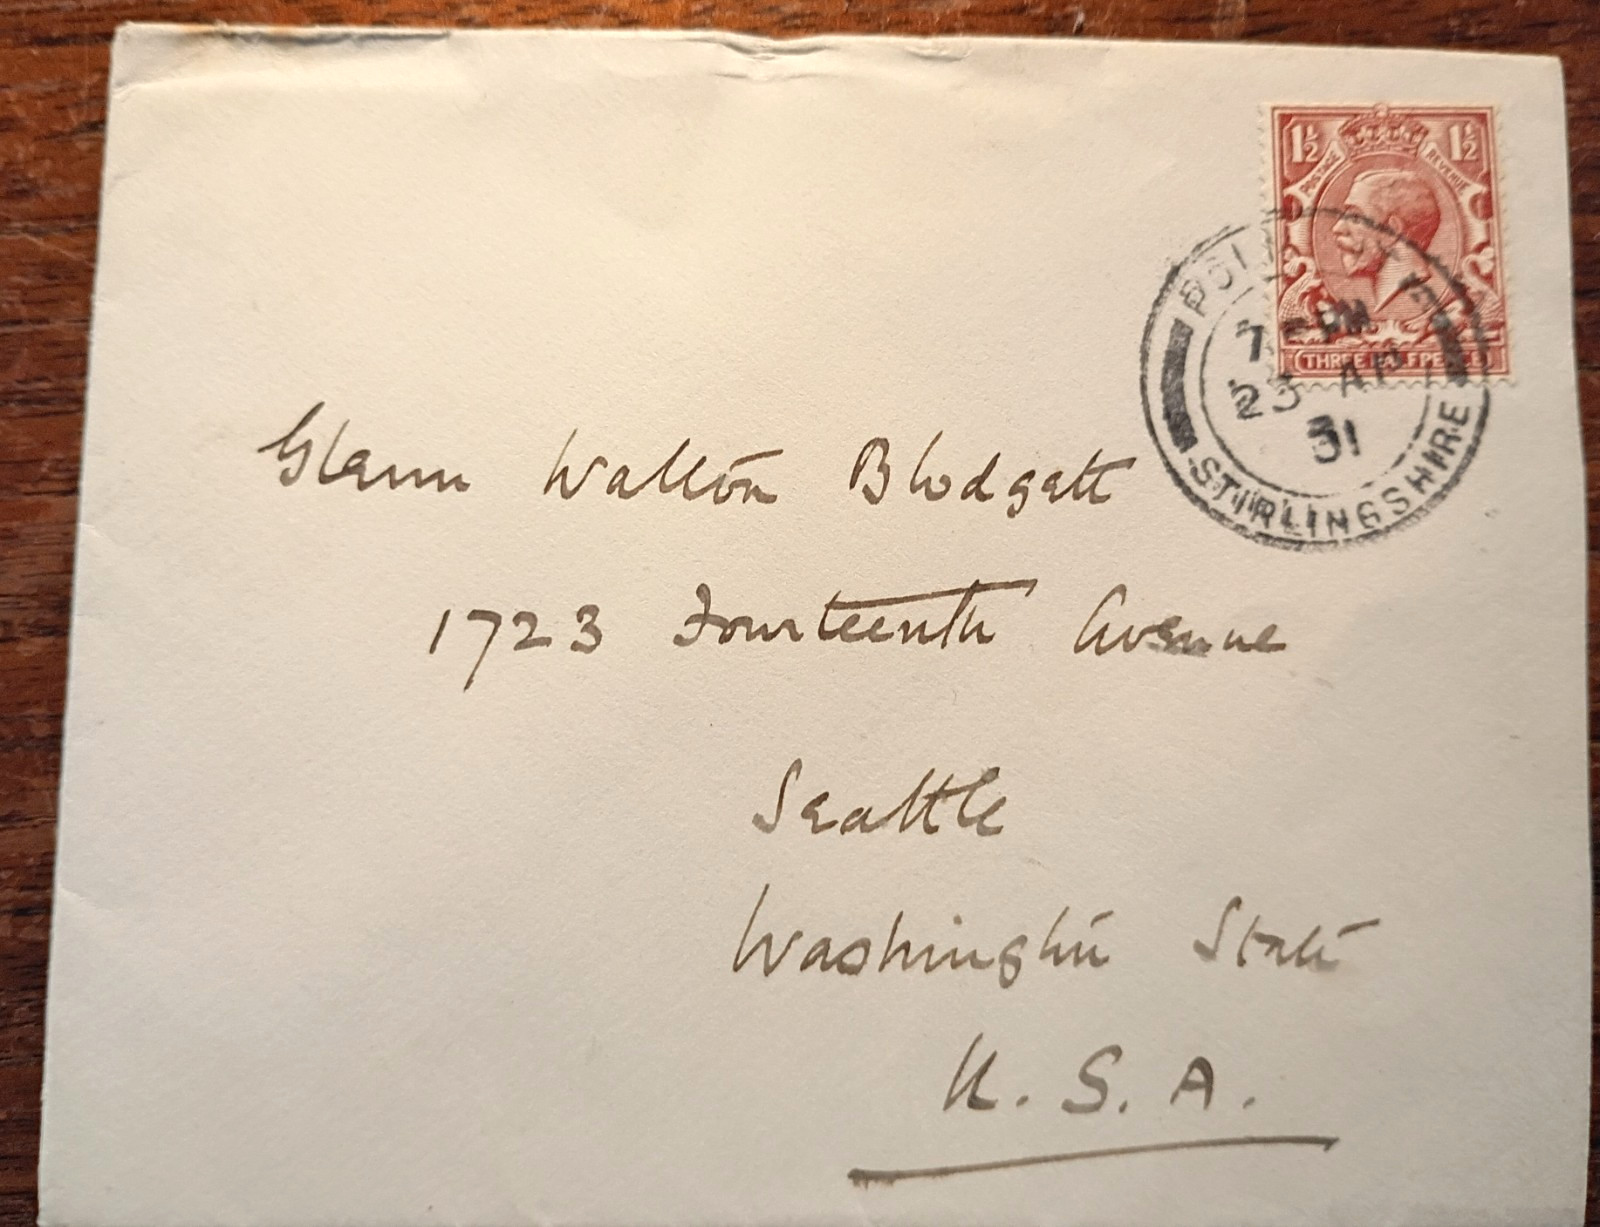 1½ 1½
POSTAGE REVENUE
THREE HALFPENCE
7 PM
23 AP
31
STIRLINGSHIRE
Glenn Walton Blodgett
1723 Fourteenth Avenue
Seattle
Washington State
U.S.A.